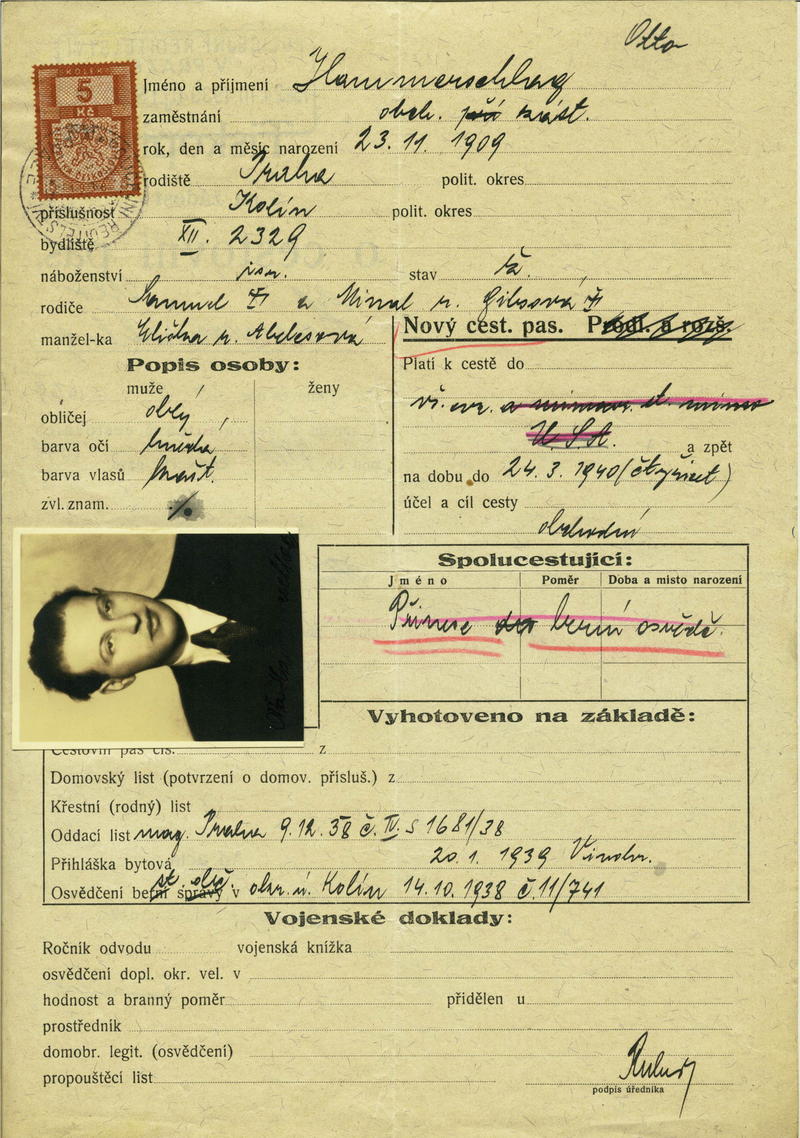 Otto
KOLEK
5
Kč
Jméno a příjmení Hammerschlag
zaměstnání obch. zást.
rok, den a měsíc narození 23. 11. 1909
rodiště Praha polit. okres
příslušnost Kolín polit. okres
bydliště XII. 2329
náboženství isr. stav
rodiče Samuel a r. Gibsová
manžel-ka Eliška r. Abelesová
Nový cest. pas. Prodl. a rozš.
Popis osoby:
muže ženy
obličej oblý
barva očí hnědá
barva vlasů kašt.
zvl. znam. ./.
Platí k cestě do
vš. evr. a mimoev. st. mimo
U.S.A. a zpět
na dobu do 24. 3. 1940 (čtyřicet)
účel a cíl cesty
obchodní
Spolucestující:
Jméno Poměr Doba a místo narození
Přinese berní osvědč.
Vyhotoveno na základě:
Cestovní pas čís. z
Domovský list (potvrzení o domov. přísluš.) z
Křestní (rodný) list
Oddací list mag. Praha 9. 12. 38 č. IV. s 1681/38
Přihláška bytová 20. 1. 1939 Vinohr.
st. obč.
Osvědčení berní správy v okr. ú. Kolín 14. 10. 1938 č. 11/741
Vojenské doklady:
Ročník odvodu vojenská knížka
osvědčení dopl. okr. vel. v
hodnost a branný poměr přidělen u
prostředník
domobr. legit. (osvědčení)
propouštěcí list
podpis úředníka